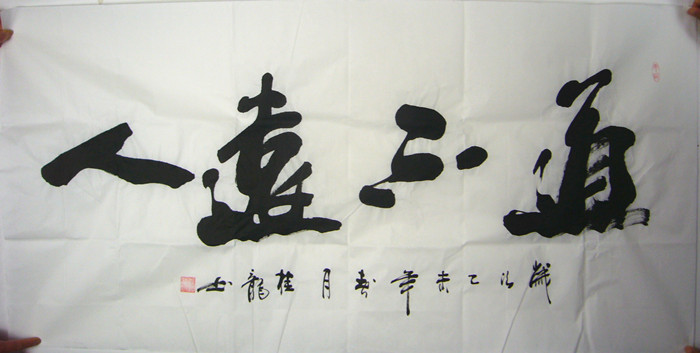 道不遠人
歲次乙未年春月桂龍